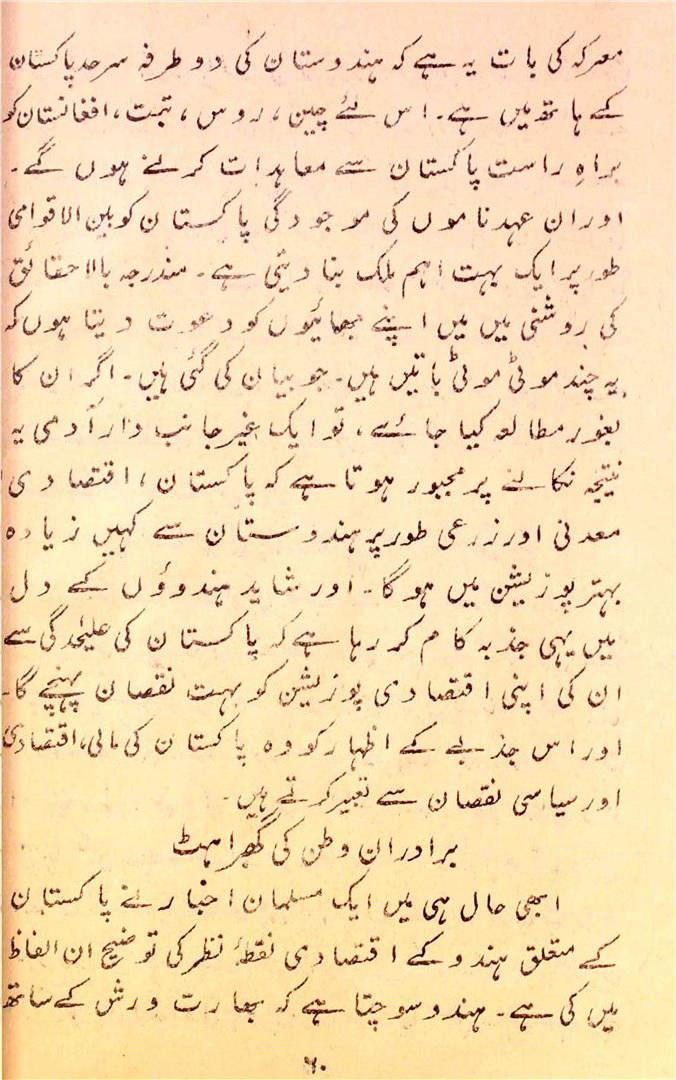 معرکہ کی بات یہ ہے کہ ہندوستان کی دو طرفہ سرحد پاکستان
کے ہاتھ میں ہے۔ اس لئے چین، روس، تبت، افغانستان کو
براہِ راست پاکستان سے معاہدات کرنے ہوں گے۔
اور ان عہدناموں کی موجودگی پاکستان کو بین الاقوامی
طور پر ایک بہت اہم ملک بنا دیتی ہے۔ مندرجہ بالا حقائق
کی روشنی میں میں اپنے بھائیوں کو دعوت دیتا ہوں کہ
یہ چند موٹی موٹی باتیں ہیں۔ جو بیان کی گئی ہیں۔ اگر ان کا
بغور مطالعہ کیا جائے، تو ایک غیر جانب دار آدمی یہ
نتیجہ نکالنے پر مجبور ہوتا ہے کہ پاکستان، اقتصادی
معدنی اور زرعی طور پر ہندوستان سے کہیں زیادہ
بہتر پوزیشن میں ہوگا۔ اور شاید ہندوؤں کے دل
میں یہی جذبہ کام کر رہا ہے کہ پاکستان کی علیٰحدگی سے
ان کی اپنی اقتصادی پوزیشن کو بہت نقصان پہنچے گا۔
اور اس جذبے کے اظہار کو وہ پاکستان کی مالی، اقتصادی
اور سیاسی نقصان سے تعبیر کرتے ہیں۔
برادران وطن کی گھبراہٹ
ابھی حال ہی میں ایک مسلمان اخبار نے پاکستان
کے متعلق ہندو کے اقتصادی نقطۂ نظر کی توضیح ان الفاظ
میں کی ہے۔ ہندو سوچتا ہے کہ بھارت ورش کے ساتھ
۶۰